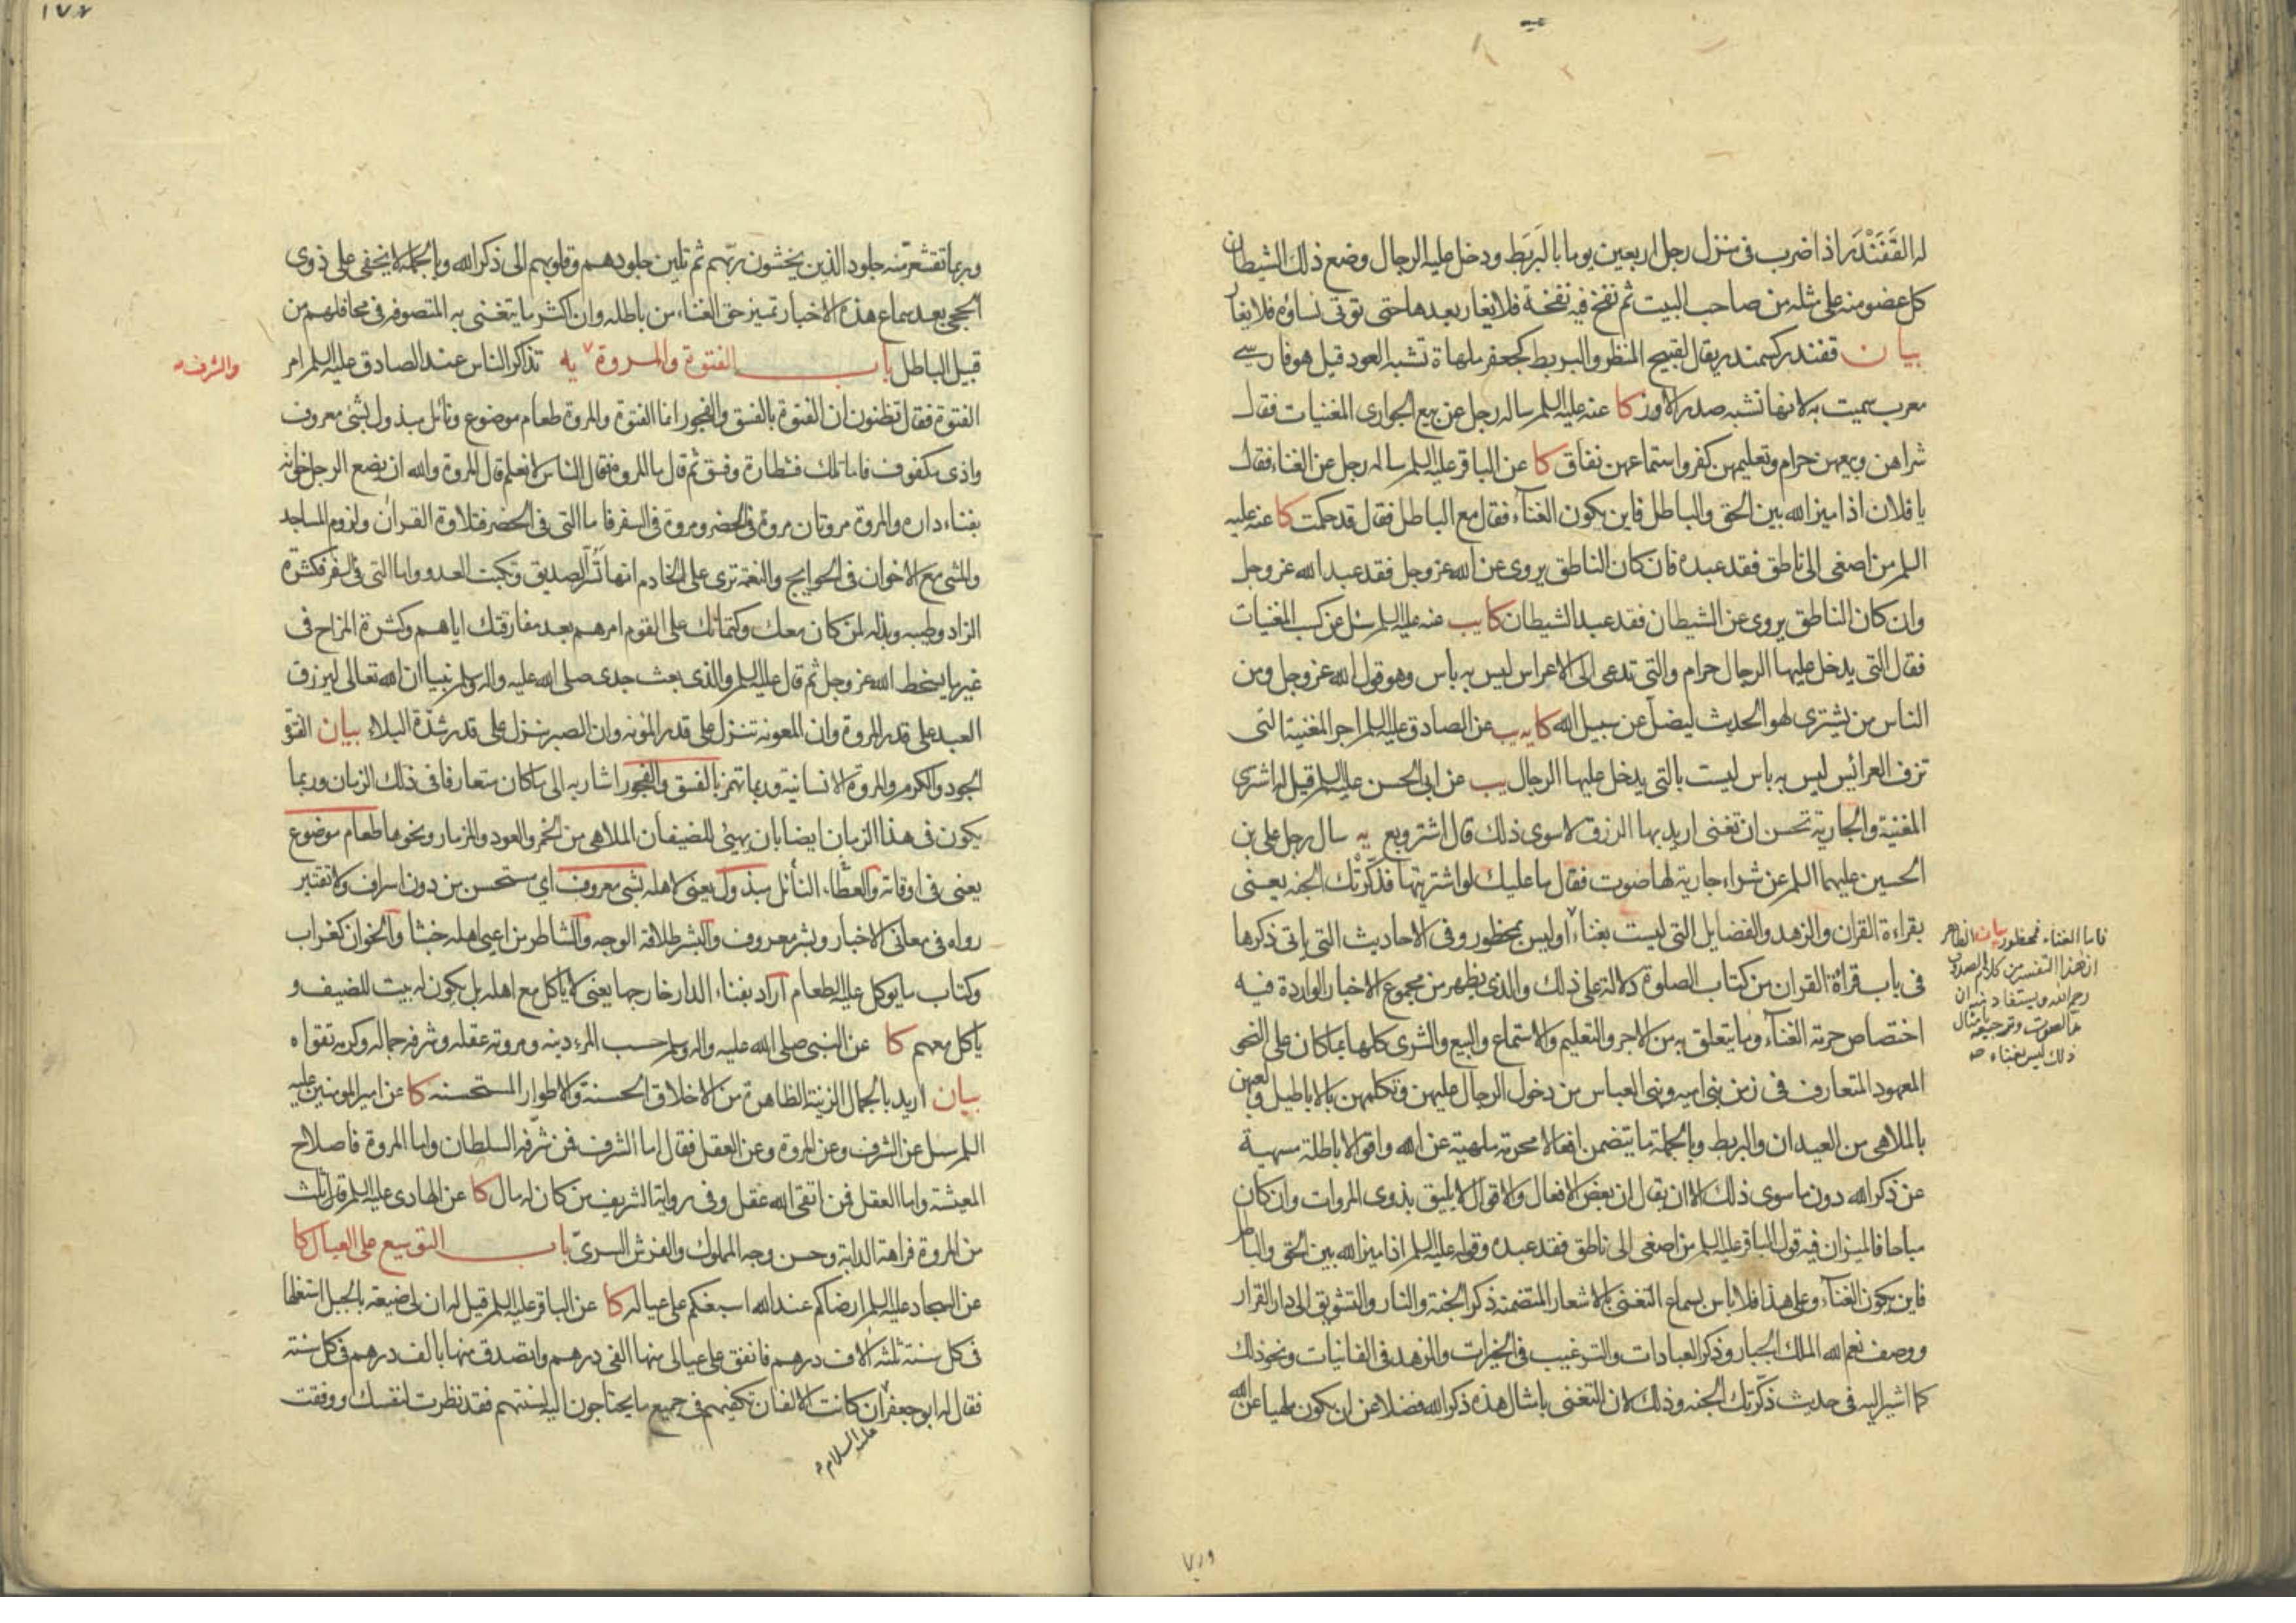 له القَفَنْدَر اذا ضرب فى منزل رجل اربعين يوما بالبَربَط ودخل عليه الرجال وضع ذلك الشيطان
كل عضو منه على مثله من صاحب البيت ثم نفخ فيه نفخة فلا يغار بعدها حتى توتى نساؤه فلا يغار
بيان قفندر كسمندر يقال لقبيح المنظر والبربط كجعفر ملهاة تشبه العود قيل هو فارسى
معرب سميت به لانها تشبه صدر الاوز كا عنه عليه السلم ساله رجل عن بيع الجوارى المغنيات فقال
شراهن وبيعهن حرام وتعليمهن كفر واستماعهن نفاق كا عن الباقر عليه السلم ساله رجل عن الغناء فقال
يا فلان اذا ميز الله بين الحق والباطل فاين يكون الغناء فقال مع الباطل فقال قد حكمت كا عنه عليه
السلم من اصغى الى ناطق فقد عبده فان كان الناطق يروى عن الله عز وجل فقد عبد الله عز وجل
وان كان الناطق يروى عن الشيطان فقد عبد الشيطان كا يب عنه عليه السلم سئل عن كسب المغنيات
فقال التى يدخل عليها الرجال حرام والتى تدعى الى الاعراس ليس به بأس وهو قول الله عز وجل ومن
الناس من يشترى لهو الحديث ليضل عن سبيل الله كا يه يب عن الصادق عليه السلم اجر المغنية التى
تزف العرائس ليس به باس ليست بالتى يدخل عليها الرجال يب عن ابى الحسن عليه السلم قيل له اشترى
المغنية والجارية تحسن ان تغنى اريد بها الرزق لا سوى ذلك قال اشتر وبع يه سال رجل على بن
الحسين عليهما السلم عن شراء جارية لها صوت فقال ما عليك لو اشتريتها فذكّرتك الجنه يعنى
بقراءة القران والزهد والفضايل التى ليست بغناء اوليس بمحظور وفى الاحاديث التى ياتى ذكرها
فى باب قراءة القران من كتاب الصلوة دلالة على ذلك والذى يظهر من مجموع الاخبار الواردة فيه
اختصاص حرمة الغناء وما يتعلق به من الاجر والتعليم والاستماع والبيع والشرى كلها بما كان على النحو
المعهود المتعارف فى زمن بنى اميه وبنى العباس من دخول الرجال عليهن وتكلمهن بالاباطيل ولعبهن
بالملاهى من العيدان والبربط وبالجملة ما يتضمن افعالا محرمة ملهية عن الله واقوالا باطلة مسهية
عن ذكر الله دون ما سوى ذلك الا ان يقال ان بعض الافعال والاقوال لا يليق بذوى المروات وان كان
مباحا فالميزان فيه قول الباقر عليه السلم من اصغى الى ناطق فقد عبده وقوله عليه السلم اذا ميز الله بين الحق والباطل
فاين يكون الغناء وعلى هذا فلا باس بسماع التغنى بالاشعار المتضمنة ذكر الجنة والنار والتشويق الى دار القرار
ووصف نعم الله الملك الجبار وذكر العبادات والترغيب فى الخيرات والزهد فى الفانيات ونحو ذلك
كما اشير اليه فى حديث ذكّرتك الجنه وذلك لان التغنى بامثال هذه ذكر الله فضلا عن ان يكون ملهيا عن الله
فاما الغناء فمحظور بيان الظاهر
ان هذا التفسير من كلام الصدوق
رحمه الله ويستفاد منه ان
مد الصوت وترجيعه بامثال
ذلك ليس بغناء صه
١٧٤
وربما تقشعر منه جلود الذين يخشون ربّهم ثم تلين جلودهم وقلوبهم الى ذكر الله وبالجملة لا يخفى على ذوى
الحجى بعد سماع هذه الاخبار تمييز حق الغناء من باطله وان اكثر ما يتغنى به المتصوفه فى محافلهم من
قبيل الباطل باب الفتوة والمروة يه تذاكر الناس عند الصادق عليه السلم امر
والشرف
الفتوة فقال تظنون ان الفتوة بالفسق والفجور انما الفتوة والمروة طعام موضوع ونائل مبذول بشئ معروف
واذى مكفوف فاما تلك فشطارة وفسق ثم قال ما المروة فقال الناس لا نعلم قال المروة والله ان يضع الرجل خوانه
بفناء داره والمروة مروتان مروة فى الحضر ومروة فى السفر فاما التى فى الحضر فتلاوة القران ولزوم المساجد
والمشى مع الاخوان فى الحوايج والنعمة ترى على الخادم انها تسر الصديق وتكبت العدو واما التى فى السفر فكثرة
الزاد وطيبه وبذله لمن كان معك وكتمانك على القوم امرهم بعد مفارقتك اياهم وكثرة المزاح فى
غير ما يسخط الله عز وجل ثم قال عليه السلم والذى بعث جدى صلى الله عليه واله وسلم نبيا ان الله تعالى ليرزق
العبد على قدر المروة وان المعونه تنزل على قدر المؤنه وان الصبر ينزل على قدر شدّة البلاء بيان الفتوة
الجود والكرم والمروة الانسانية وربما تهمز بالفسق والفجور اشار به الى ما كان متعارفا فى ذلك الزمان وربما
يكون فى هذا الزمان ايضا بان يهيئ للضيفان الملاهى من الخمر والعود والمزمار ونحوها طعام موضوع
يعنى فى اوقاته والعطاء النائل مبذول يعنى لاهله بشئ معروف اى مستحسن من دون اسراف ولا تقتير
رواه فى معانى الاخبار وبشر معروف والبشر طلاقة الوجه والشاطر من اعيى اهله خبثا والخوان كغراب
وكتاب ما يوكل عليه الطعام اراد بفناء الدار خارجها يعنى لا ياكل مع اهله بل يكون له بيت للضيف و
ياكل معهم كا عن النبى صلى الله عليه واله وسلم حسب المرء دينه ومروته عقله وشرفه جماله وكرمه تقواه
بيان اريد بالجمال الزينة الظاهرة من الاخلاق الحسنة والاطوار المستحسنه كا عن امير المومنين عليه
السلم سئل عن الشرف وعن المروة وعن العقل فقال اما الشرف فمن شرفه السلطان واما المروة فاصلاح
المعيشة واما العقل فمن اتقى الله عقل وفى رواية الشريف من كان له مال كا عن الهادى عليه السلم قال ثلث
من المروة فراهة الدابة وحسن وجه المملوك والفرش السرىّ باب التوسيع على العيال كا
عن السجاد عليه السلم ارضاكم عند الله اسبغكم على عياله كا عن الباقر عليه السلم قيل له ان لى ضيعة بالجبل استغلها
فى كل سنة ثلثه الاف درهم فانفق على عيالى منها الفى درهم واتصدق منها بالف درهم فى كل سنة
فقال له ابو جعفر ان كانت الالفان تكفيهم فى جميع ما يحتاجون اليه لسنتهم فقد نظرت لنفسك ووفقت
عليه السلام